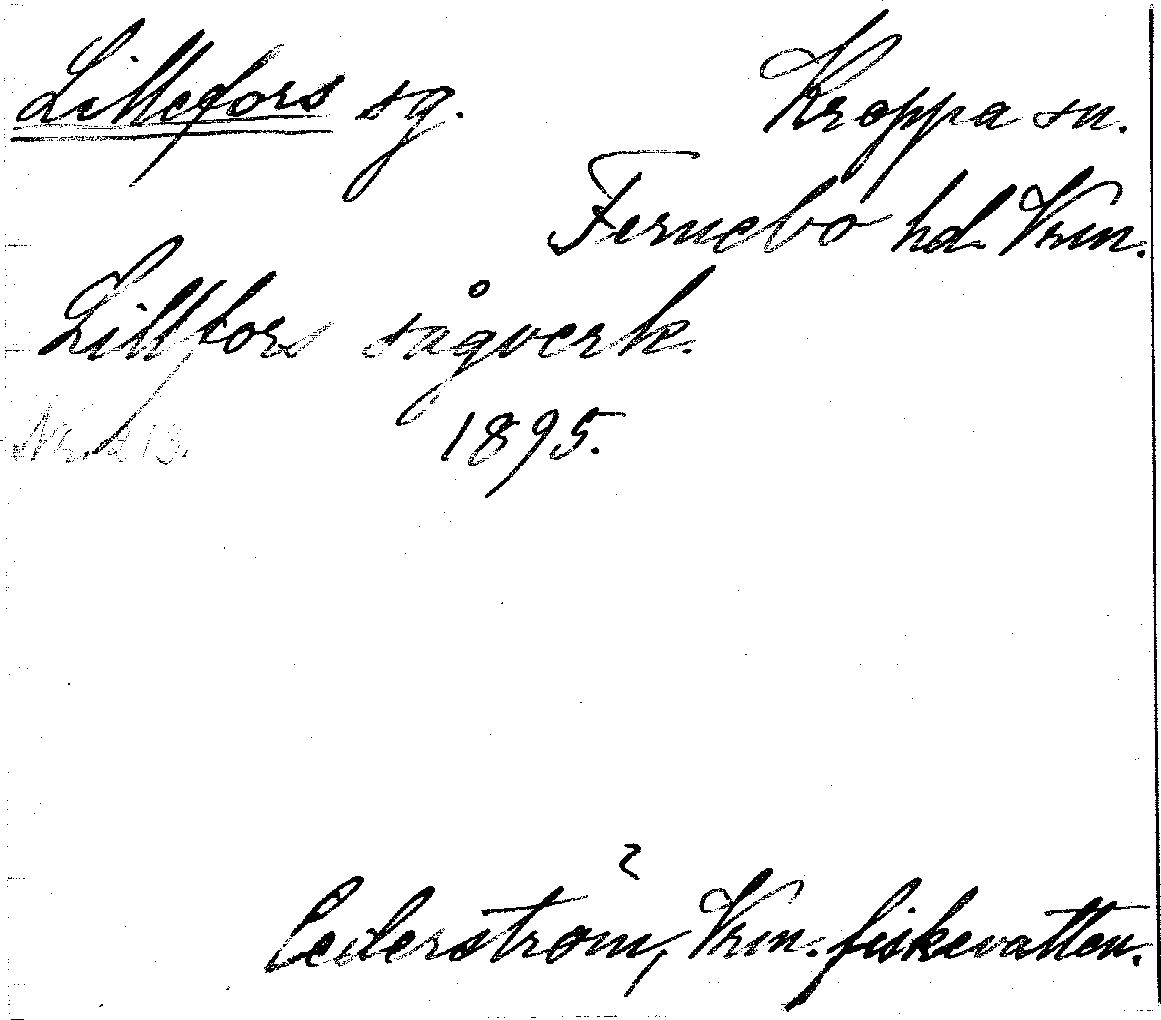 Lillefors sg. Kroppa sn.
Fernebo hd. Vrm.
Lillfors sågverk.
1895.
2
Cederström, Vrm. fiskevatten.